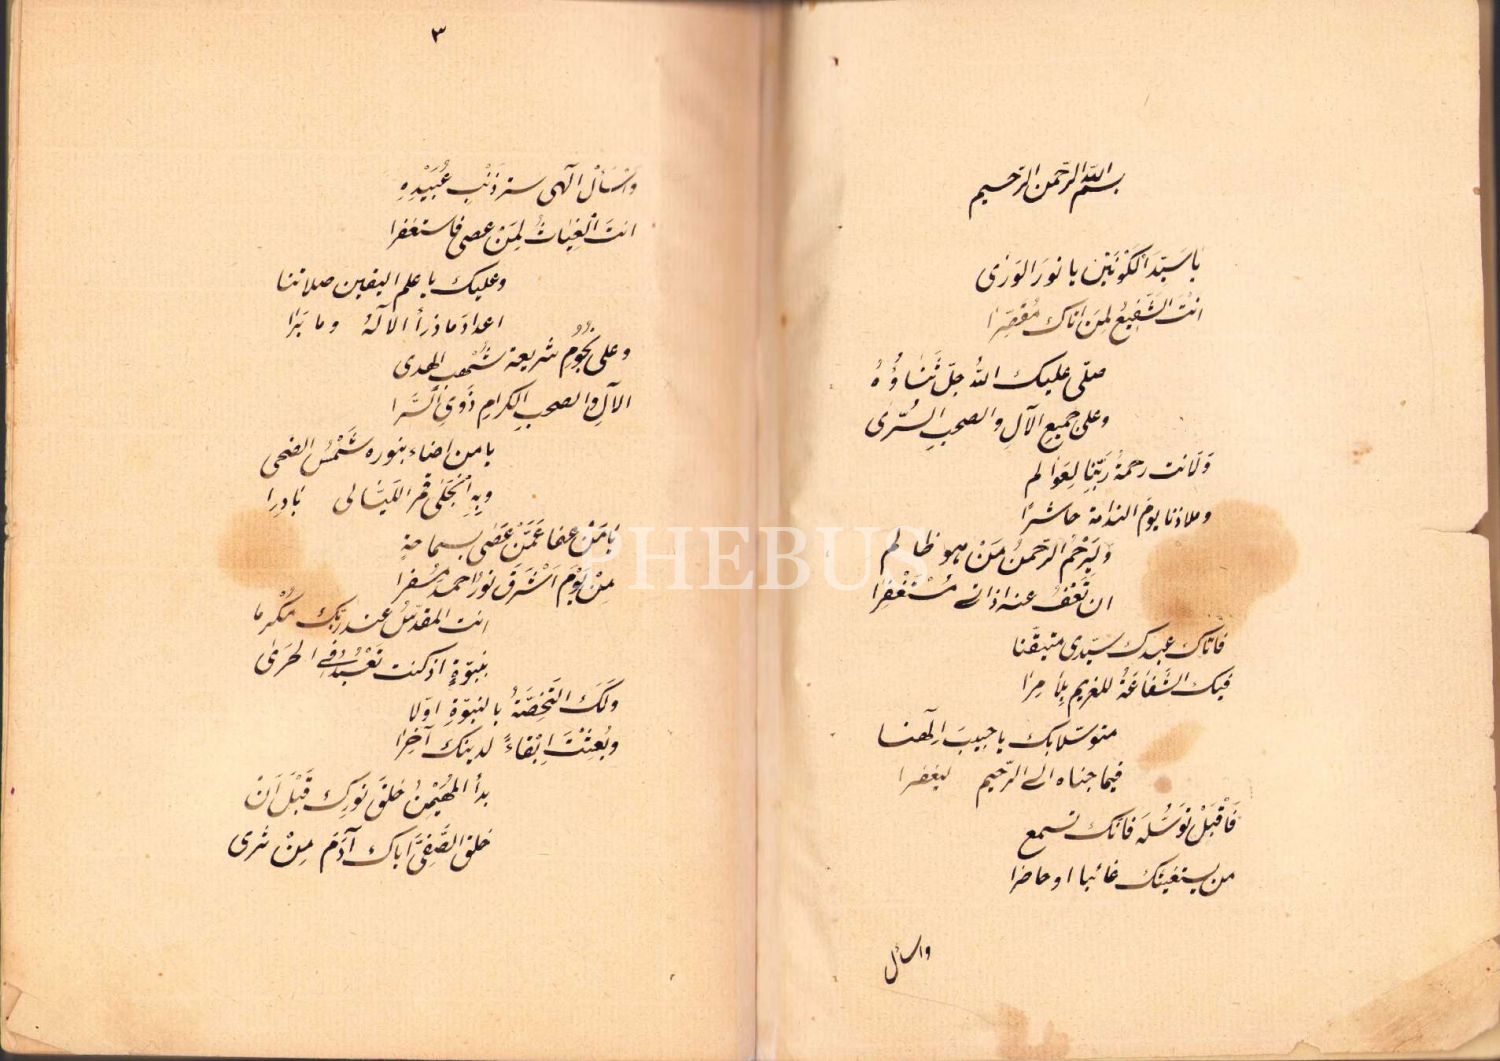 بسم الله الرحمن الرحيم
يا سَيّدَ الكَوْنَيْن يا نورَ الوَرٰى
انتَ الشَّفِيعُ لِمَن اتاك مُقصِّرًا
صلّى عليك اللهُ جلّ ثَناؤُهُ
وعلى جميع الآلِ والصحبِ السُّرٰى
وَلَانت رحمةُ رَبِّنا لِعَوالم
وملاذنا يومَ الندامة حاشرًا
وَلْيَرْحَمُ الرّحمنُ مَنْ هو ظالم
ان تَعْفُ عنه اذ اتى مُسْتَغْفِرًا
فاتاك عبدك سيّدي متيقّنا
فيك الشَّفاعَةُ للغريم بِلا مِرا
متوسّلا بك يا حبيبَ اِلٰهنا
فيما جناه الى الرّحيم ليغفرا
فَاقْبَلْ توَسُّلَه فانّك تسمع
من يستغيثك غائبا او حاضرا
واسأل
٣
وَاسْأَلْ الٰهى ستر ذَنْبِ عُبَيْدِهِ
انتَ الْغِياثُ لِمَنْ عصى فاستغفرا
وعليك يا علم اليقين صلاتنا
اعدادَ ما ذرأ الالٰهُ وما بَرَا
وعلى نُجُومِ شريعة شُهْبِ الهدى
الآلِ والصحبِ الكِرامِ ذَوِى السَّرا
يا من اضاء بنوره شَمْسُ الضحى
وبِهِ انْجَلٰى قمر اللَّيالى بادرا
يا مَنْ عفا عَمَّنْ عَصٰى بسماحةٍ
مِنْ يَوْم اَشْرَقَ نورُ احمد مُسْفِرا
انت المقدّسُ عند ربّك مُكْرما
بنبوّةٍ اذ كنت تَعْبُدُ فى الحَرٰى
وَلَكَ التَّخصّةُ بالنبوّةِ اوّلا
وبُعِثْتَ اِبْقاءً لدينك آخِرًا
بدأ المهَيْمِنُ خلقَ نورِك قَبْلَ اَن
خلق الصَّفِيَّ اَباك آدَمَ مِنْ ثرى
PHEBUS